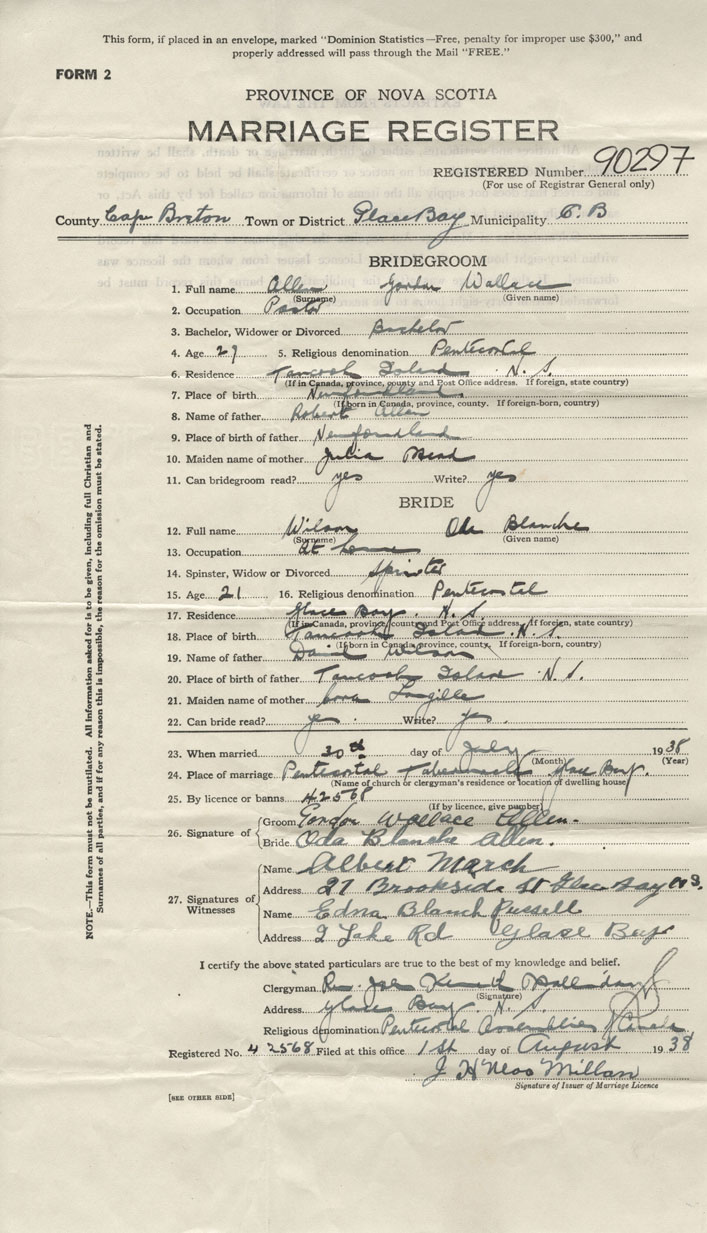 This form, if placed in an envelope, marked "Dominion Statistics—Free, penalty for improper use $300," and
properly addressed will pass through the Mail "FREE."
FORM 2
PROVINCE OF NOVA SCOTIA
MARRIAGE REGISTER
REGISTERED Number 90297
(For use of Registrar General only)
County Cape Breton Town or District Glace Bay Municipality C. B
BRIDEGROOM
1. Full name Allen Gordon Wallace
(Surname) (Given name)
2. Occupation Pastor
3. Bachelor, Widower or Divorced Bachelor
4. Age 27 5. Religious denomination Pentecostal
6. Residence Tancook Island N. S.
(If in Canada, province, county and Post Office address. If foreign, state country)
7. Place of birth Newfoundland
(If born in Canada, province, county. If foreign-born, country)
8. Name of father Robert Allen
9. Place of birth of father Newfoundland
10. Maiden name of mother Julia Mead
11. Can bridegroom read? yes Write? yes
BRIDE
12. Full name Wilson Oda Blanche
(Surname) (Given name)
13. Occupation at home
14. Spinster, Widow or Divorced Spinster
15. Age 21 16. Religious denomination Pentecostal
17. Residence Glace Bay. N. S.
(If in Canada, province, county and Post Office address. If foreign, state country)
18. Place of birth Tancook Island N. S.
(If born in Canada, province, county. If foreign-born, country)
19. Name of father David Wilson
20. Place of birth of father Tancook Island N. S.
21. Maiden name of mother Langille
22. Can bride read? yes. Write? yes.
23. When married 30th day of July 1938
(Month) (Year)
24. Place of marriage Pentecostal Tabernacle Glace Bay.
(Name of church or clergyman's residence or location of dwelling house)
25. By licence or banns 42568
(If by licence, give number)
26. Signature of
Groom Gordon Wallace Allen.
Bride Oda Blanche Allen.
27. Signatures of Witnesses
Name Albert March
Address 27 Brookside St Glace Bay N.S.
Name Edna Blanch Russell
Address 2 Lake Rd Glace Bay
I certify the above stated particulars are true to the best of my knowledge and belief.
Clergyman Rev. Kenneth
(Signature)
Address Glace Bay N. S.
Religious denomination Pentecostal Assemblies of Canada
Registered No. 42568 Filed at this office 1st day of August 1938
J H
Signature of Issuer of Marriage Licence
[SEE OTHER SIDE]
NOTE.—This form must not be mutilated. All information asked for is to be given, including full Christian and
Surnames of all parties, and if for any reason this is impossible, the reason for the omission must be stated.